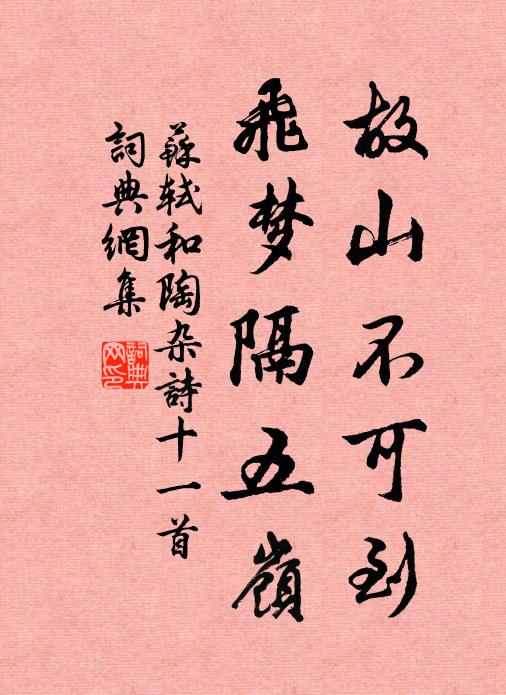 故山不可到
飛梦隔五嶺
蘇轼和陶杂詩十一首
詞典網集
詞典网印